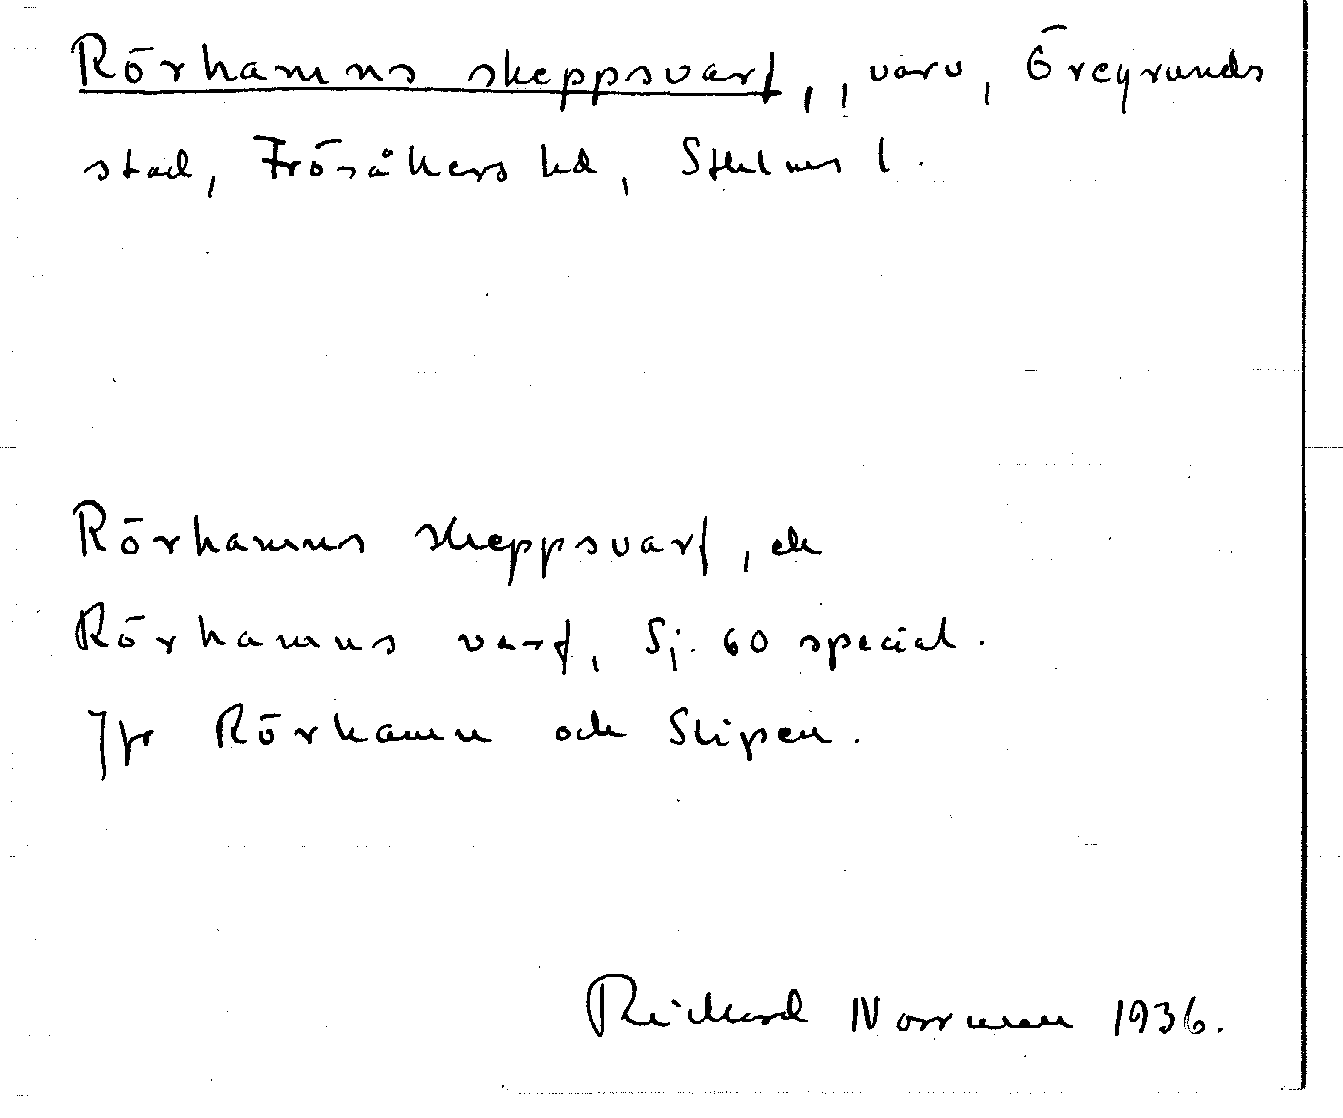 Rörhamns skeppsvarf, , varv, Öregrunds
stad, Frösåkers hd, Sthlms l.
Rörhamns skeppsvarf, ek
Rörhamns varf, Sj. 60 special.
Jfr Rörhamn och Slipen.
Rickard Norrman 1936.